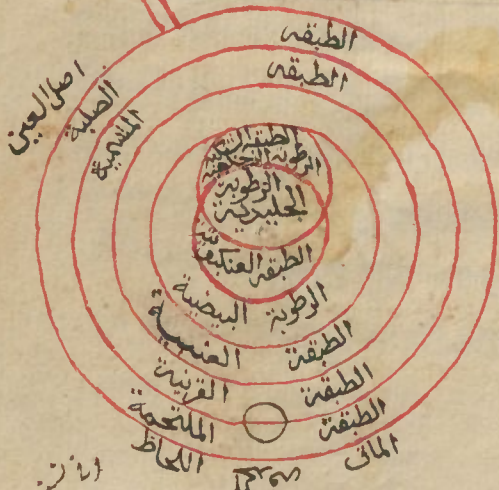 اصل العين
الطبقة
الصلبة
الطبقة
المشيمية
الطبقة الشبكية
الرطوبة الزجاجية
الرطوبة
الجليدية
الطبقة العنكبوتية
الرطوبة البيضية
الطبقة العنبية
الطبقة القرنية
الطبقة الملتحمة
الماق
اللحاظ